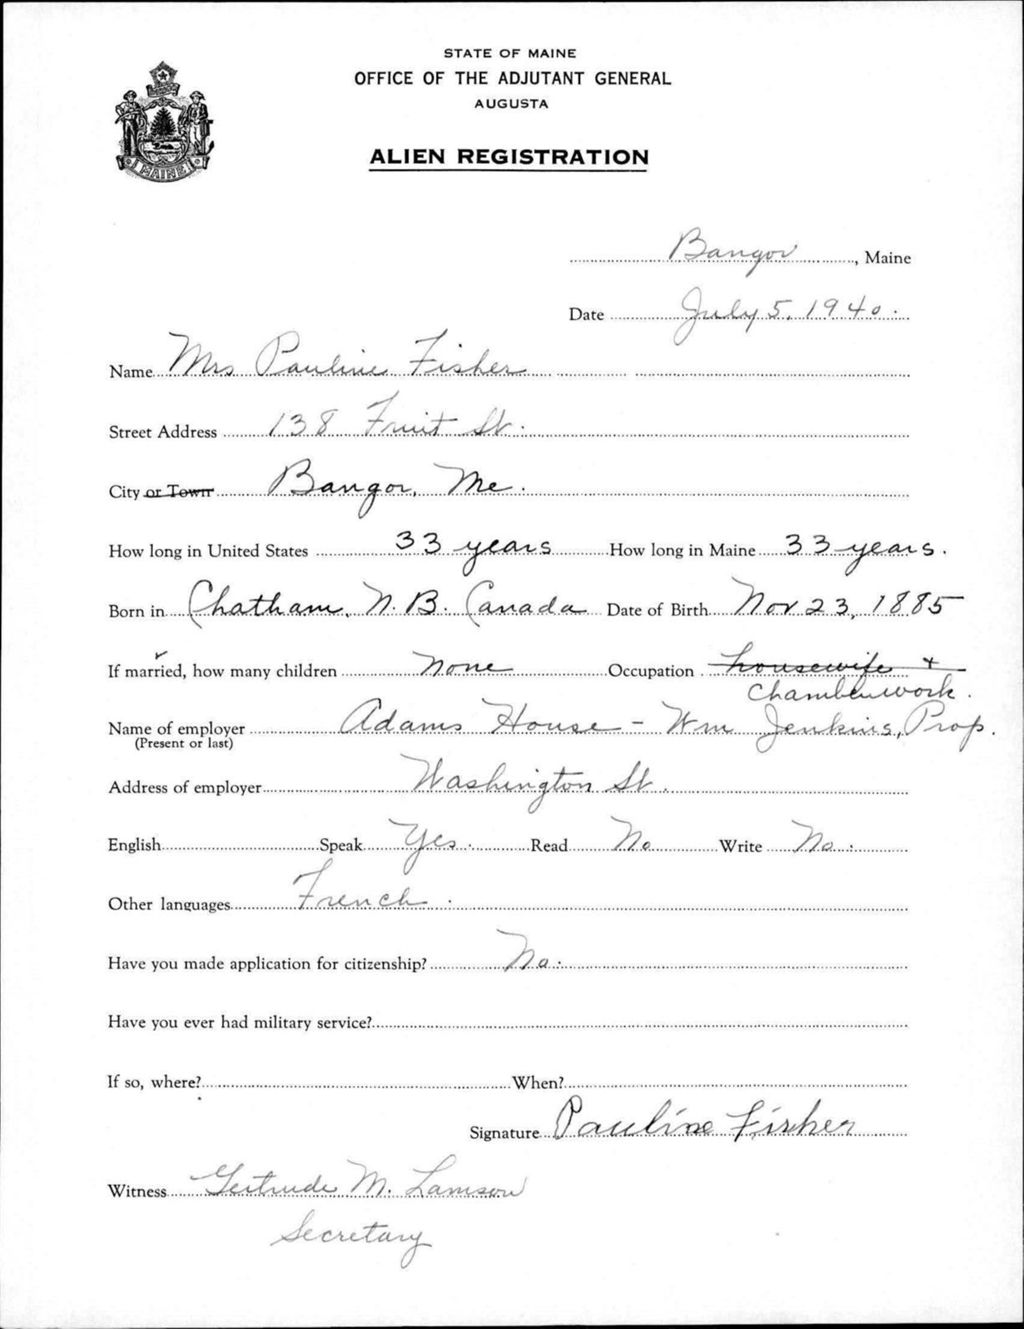 STATE OF MAINE
OFFICE OF THE ADJUTANT GENERAL
AUGUSTA
ALIEN REGISTRATION
MAINE
Bangor, Maine
Date July 5, 1940.
Name Mrs Pauline Fisher
Street Address 138 Fruit St.
City or Town Bangor, Me.
How long in United States 33 years How long in Maine 33 years.
Born in Chatham, N.B. Canada Date of Birth Nov 23, 1885
If married, how many children None Occupation housewife +
Chamberwork.
Name of employer Adams House - Wm Jenkins, Prop.
(Present or last)
Address of employer Washington St.
English Speak Yes. Read No Write No.
Other languages French.
Have you made application for citizenship? No.
Have you ever had military service?
If so, where? When?
Signature Pauline Fisher
Witness Gertrude M. Lamson
Secretary